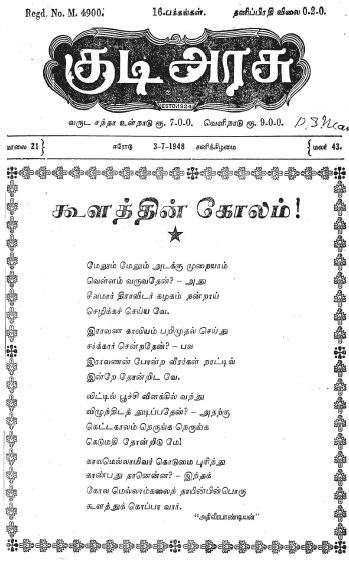 Regd. No. M. 4900. 16-பக்கங்கள். தனிப்பிரதி விலை 0-2-0.
குடி அரசு
ESTD.1924
வருட சந்தா உள்நாடு ரூ. 7-0-0. வெளிநாடு ரூ. 9-0-0.
மாலை 21 ஈரோடு 3-7-1948 சனிக்கிழமை மலர் 43.
கூளத்தின் கோலம்!
மேலும் மேலும் அடக்கு முறையாம்
வெள்ளம் வருவதேன்? – அது
சீலமார் திராவிடர் கழகம் நன்றாய்
செழிக்கச் செய்ய வே.
இராவண காவியம் பறிமுதல் செய்து
சர்க்கார் சென்றதேன்? – பல
இராவணன் போன்ற வீரர்கள் நாட்டில்
இன்றே தோன்றிட வே.
விட்டில் பூச்சி விளக்கில் வந்து
விழுந்திடத் துடிப்பதேன்? – அதற்கு
கெட்டகாலம் நெருங்க நெருங்க
கெடுமதி தோன்றிடு மே!
காலமெல்லாமிவர் கொடுமை புரிந்து
காண்பது தானென்ன? – இந்தக்
கோல மெல்லாம்கலைந் தாயின்பின்பொரு
கூளத்துக் கொப்பா வார்.
“அதிவீரபாண்டியன்”